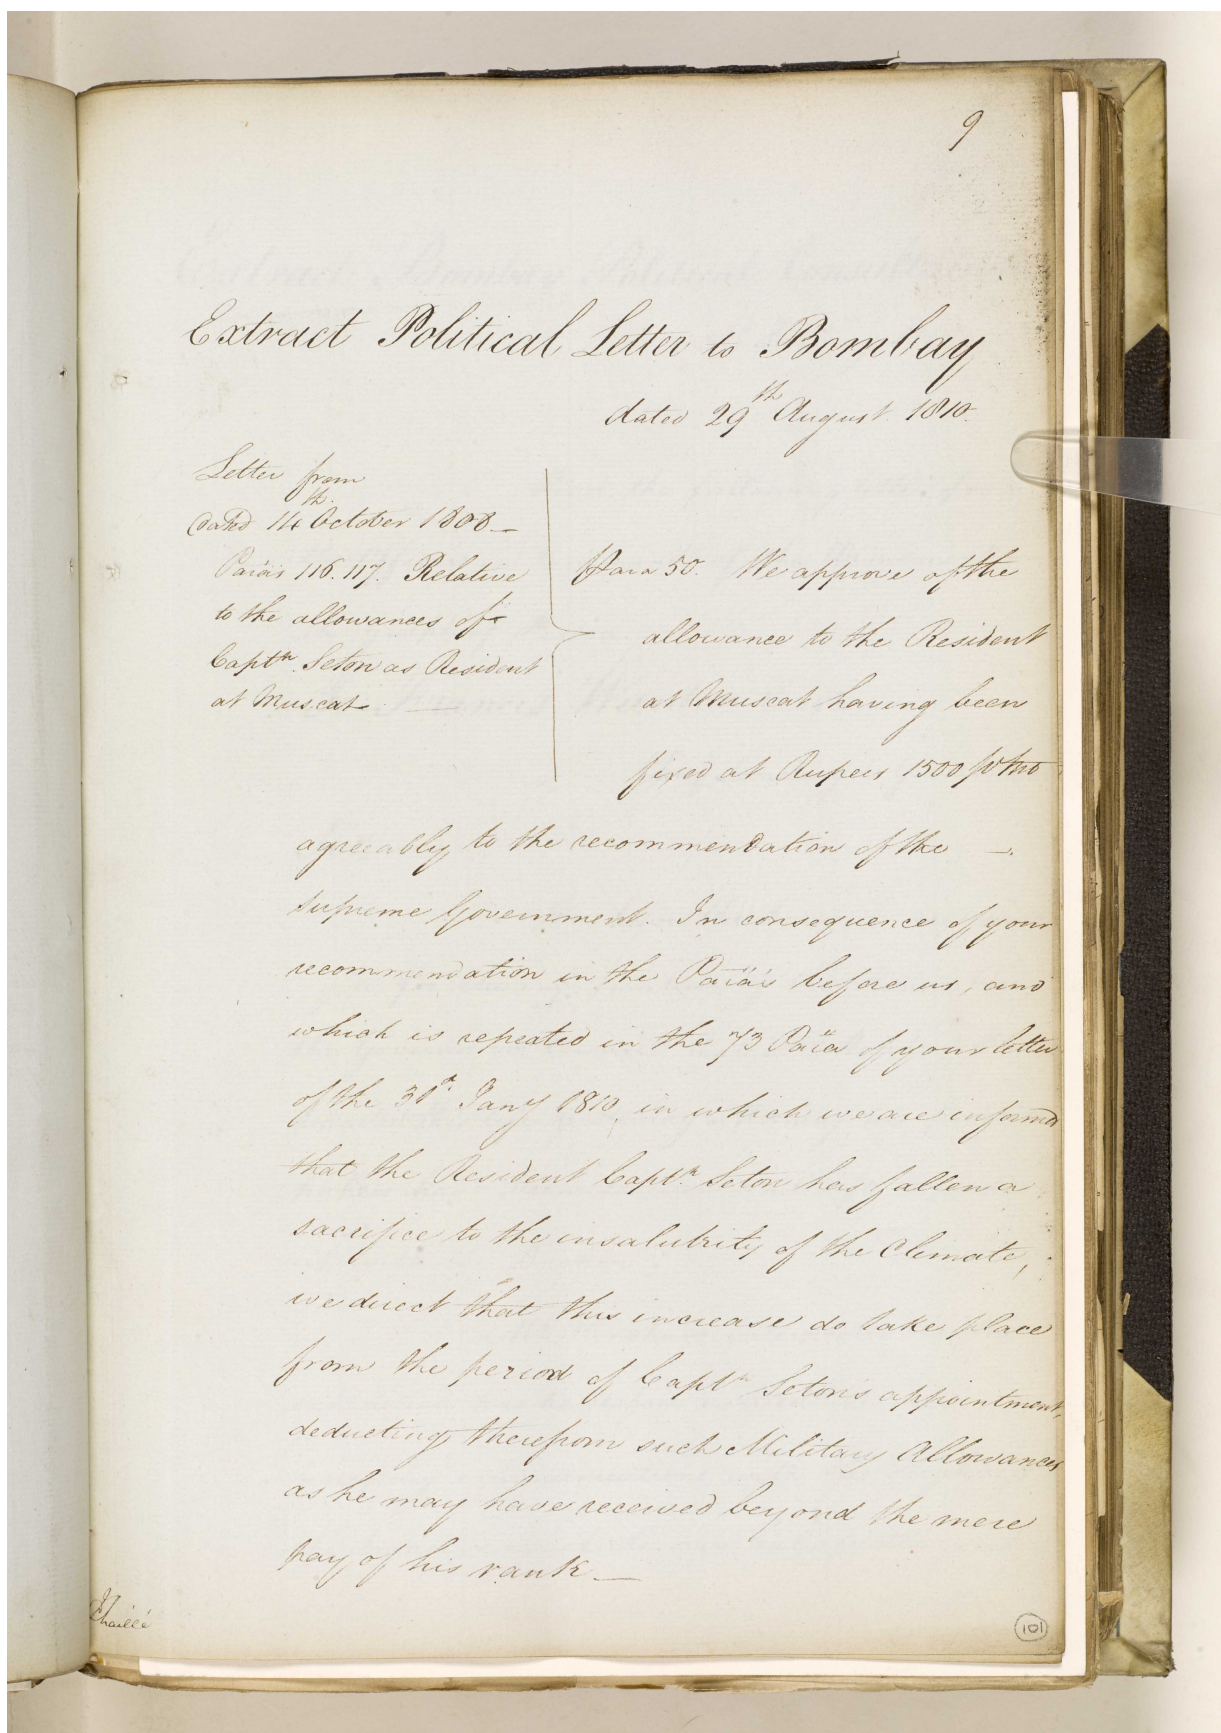 9
Extract Political Letter to Bombay
dated 29th August 1810.
Letter from
dated 14th October 1808 —
Paras 116. 117. Relative
to the allowances of
Captn. Seton as Resident
at Muscat —
Para 50. We approve of the
allowance to the Resident
at Muscat having been
fixed at Rupees 1500
agreeably to the recommendation of the —
Supreme Government. In consequence of your
recommendation in the Paras before us, and
which is repeated in the 73 Para of your letter
of the 31st. Jany 1810, in which we are informed
that the Resident Captn. Seton has fallen a
sacrifice to the insalubrity of the Climate,
we direct that this increase do take place
from the period of Captn Seton's appointment,
deducting therefrom such Military Allowances
as he may have received beyond the mere
pay of his rank —
101